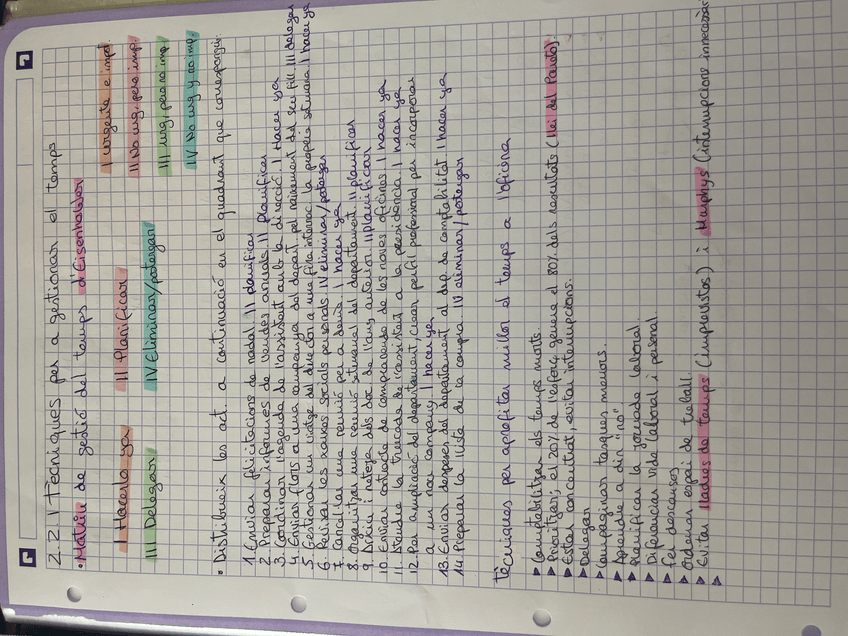 2.2.1 Tècniques per a gestionar el temps
• Matriu de gestió del temps d'Eisenhower
I Hacerlo ya II Planificar
III Delegar IV Eliminar/postergar
I urgente e impot.
II No urg. pero imp.
III urg, pero no imp.
IV No urg y no imp.
• Distribueix les act. a continuació en el quadrant que correspongui:
1. Enviar felicitacions de nadal. II planificar
2. Preparar informes de vendes anuals II planificar
3. Coordinar l'agenda de l'assistent amb la direcció I Hacer ya
4. Enviar flors a una companya del depart pel naixement del seu fill III delegar
5. Gestionar un viatge del director a una fira internac. la pròpia setmana I hacer ya
6. Revisar les xarxes socials personals IV eliminar/postergar
7. Cancel·lar una reunió per a demà I hacer ya
8. Organitzar una reunió setmanal del departament II planificar
9. Arxiu i neteja dels doc de l'any anterior II planificar
10. Enviar contracte de compravenda de les noves oficines I hacer ya
11. Atendre la trucada de l'assistent a la presidència I hacer ya
12. Per ampliació del departament, crear perfil professional per incorporar
a un nou company I hacer ya
13. Enviar despeses del departament al dep de comptabilitat I hacer ya
14 Preparar la llista de la compra. IV eliminar/postergar
Tècniques per aprofitar millor el temps a l'oficina
➤ Comptabilitzar els temps morts
➤ Prioritzar; el 20% de l'esforç genera el 80% dels resultats (llei del Pareto).
➤ Estar concentrat, evitar interrupcions.
➤ Delegar
➤ Compaginar tasques menors.
➤ Aprendre a dir "no"
➤ Planificar la jornada laboral.
➤ Diferenciar vida laboral i personal.
➤ Fer descansos
➤ Ordenar espai de treball.
➤ Evitar lladres de temps (imprevistos) i Murphys (interrupcions innecessàr
➤